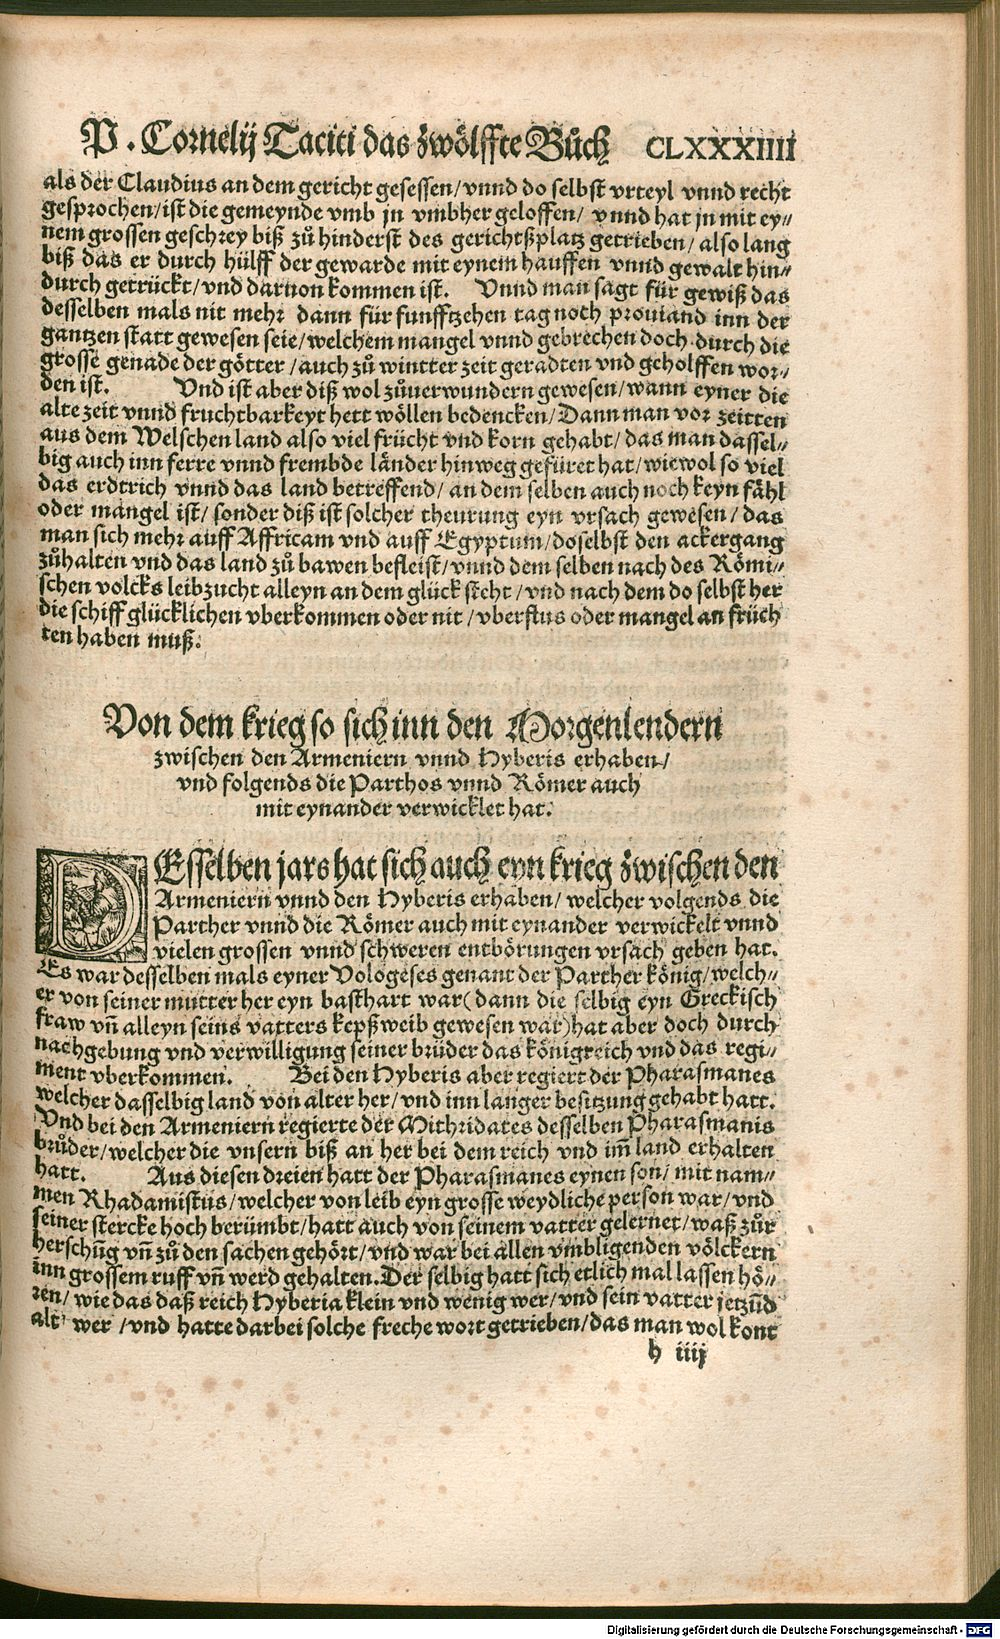 P. Cornelij Taciti das zwölffte Bůch CLXXXIIII
als der Claudius an dem gericht gesessen/vnnd do selbst vrteyl vnnd recht
gesprochen/ist die gemeynde vmb jn vmbher geloffen/ vnnd hat jn mit ey⸗
nem grossen geschrey biß zů hinderst des gerichtßplatz getrieben/ also lang
biß das er durch hülff der gewarde mit eynem hauffen vnnd gewalt hin⸗
durch getrückt/vnd daruon kommen ist. Vnnd man sagt für gewiß das
desselben mals nit mehr dann für funfftzehen tag noch prouiand inn der
gantzen statt gewesen seie/welchem mangel vnnd gebrechen doch durch die
grosse genade der götter/auch zů wintter zeit geradten vnd geholffen wor⸗
den ist. Vnd ist aber diß wol zůuerwundern gewesen/wann eyner die
alte zeit vnnd fruchtbarkeyt hett wöllen bedencken/Dann man vor zeitten
aus dem Welschen land also viel frücht vnd korn gehabt/das man dassel⸗
big auch inn ferre vnnd frembde länder hinweg gefüret hat/wiewol so viel
das erdtrich vnnd das land betreffend/an dem selben auch noch keyn fähl
oder mangel ist/ sonder diß ist solcher theurung eyn vrsach gewesen/das
man sich mehr auff Affricam vnd auff Egyptum/doselbst den ackergang
zůhalten vnd das land zů bawen befleist/vnnd dem selben nach des Römi⸗
schen volcks leibzucht alleyn an dem glück steht/vnd nach dem do selbst her
die schiff glücklichen vberkommen oder nit/vberflus oder mangel an früch
ten haben muß.
Von dem krieg so sich inn den Morgenlendern
zwischen den Armeniern vnnd Hyberis erhaben/
vnd folgends die Parthos vnnd Römer auch
mit eynander verwicklet hat.
DEsselben jars hat sich auch eyn krieg zwischen den
Armeniern vnnd den Hyberis erhaben/ welcher volgends die
Parther vnnd die Römer auch mit eynander verwickelt vnnd
vielen grossen vnnd schweren entbörungen vrsach geben hat.
Es war desselben mals eyner Vologeses genant der Parther könig/welch⸗
er von seiner mutter her eyn basthart war(dann die selbig eyn Greckisch
fraw vñ alleyn seins vatters kepßweib gewesen war)hat aber doch durch
nachgebung vnd verwilligung seiner brüder das königreich vnd das regi⸗
ment vberkommen. Bei den Hyberis aber regiert der Pharasmanes
welcher dasselbig land von alter her/vnd inn langer besitzung gehabt hatt.
Vnd bei den Armeniern regierte der Mithridates desselben Pharasmanis
brůder/welcher die vnsern biß an her bei dem reich vnd im̃ land erhalten
hatt. Aus diesen dreien hatt der Pharasmanes eynen son/ mit nam⸗
men Rhadamistus/welcher von leib eyn grosse weydliche person war/vnd
seiner stercke hoch berümbt/hatt auch von seinem vatter gelernet/waß zůr
herschũg vñ zů den sachen gehört/vnd war bei allen vmbligenden völckern
inn grossem ruff vñ werd gehalten.Der selbig hatt sich etlich mal lassen hö⸗
ren/wie das daß reich Hyberia klein vnd wenig wer/vnd sein vatter jetzũd
alt wer/vnd hatte darbei solche freche wort getrieben/das man wol kont
h iiij
Digitalisierung gefördert durch die Deutsche Forschungsgemeinschaft - DFG